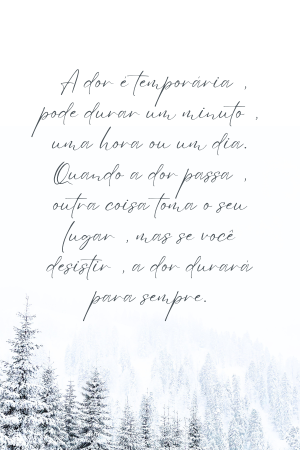 A dor é temporária ,
pode durar um minuto ,
uma hora ou um dia.
Quando a dor passa ,
outra coisa toma o seu
lugar , mas se você
desistir , a dor durará
para sempre.